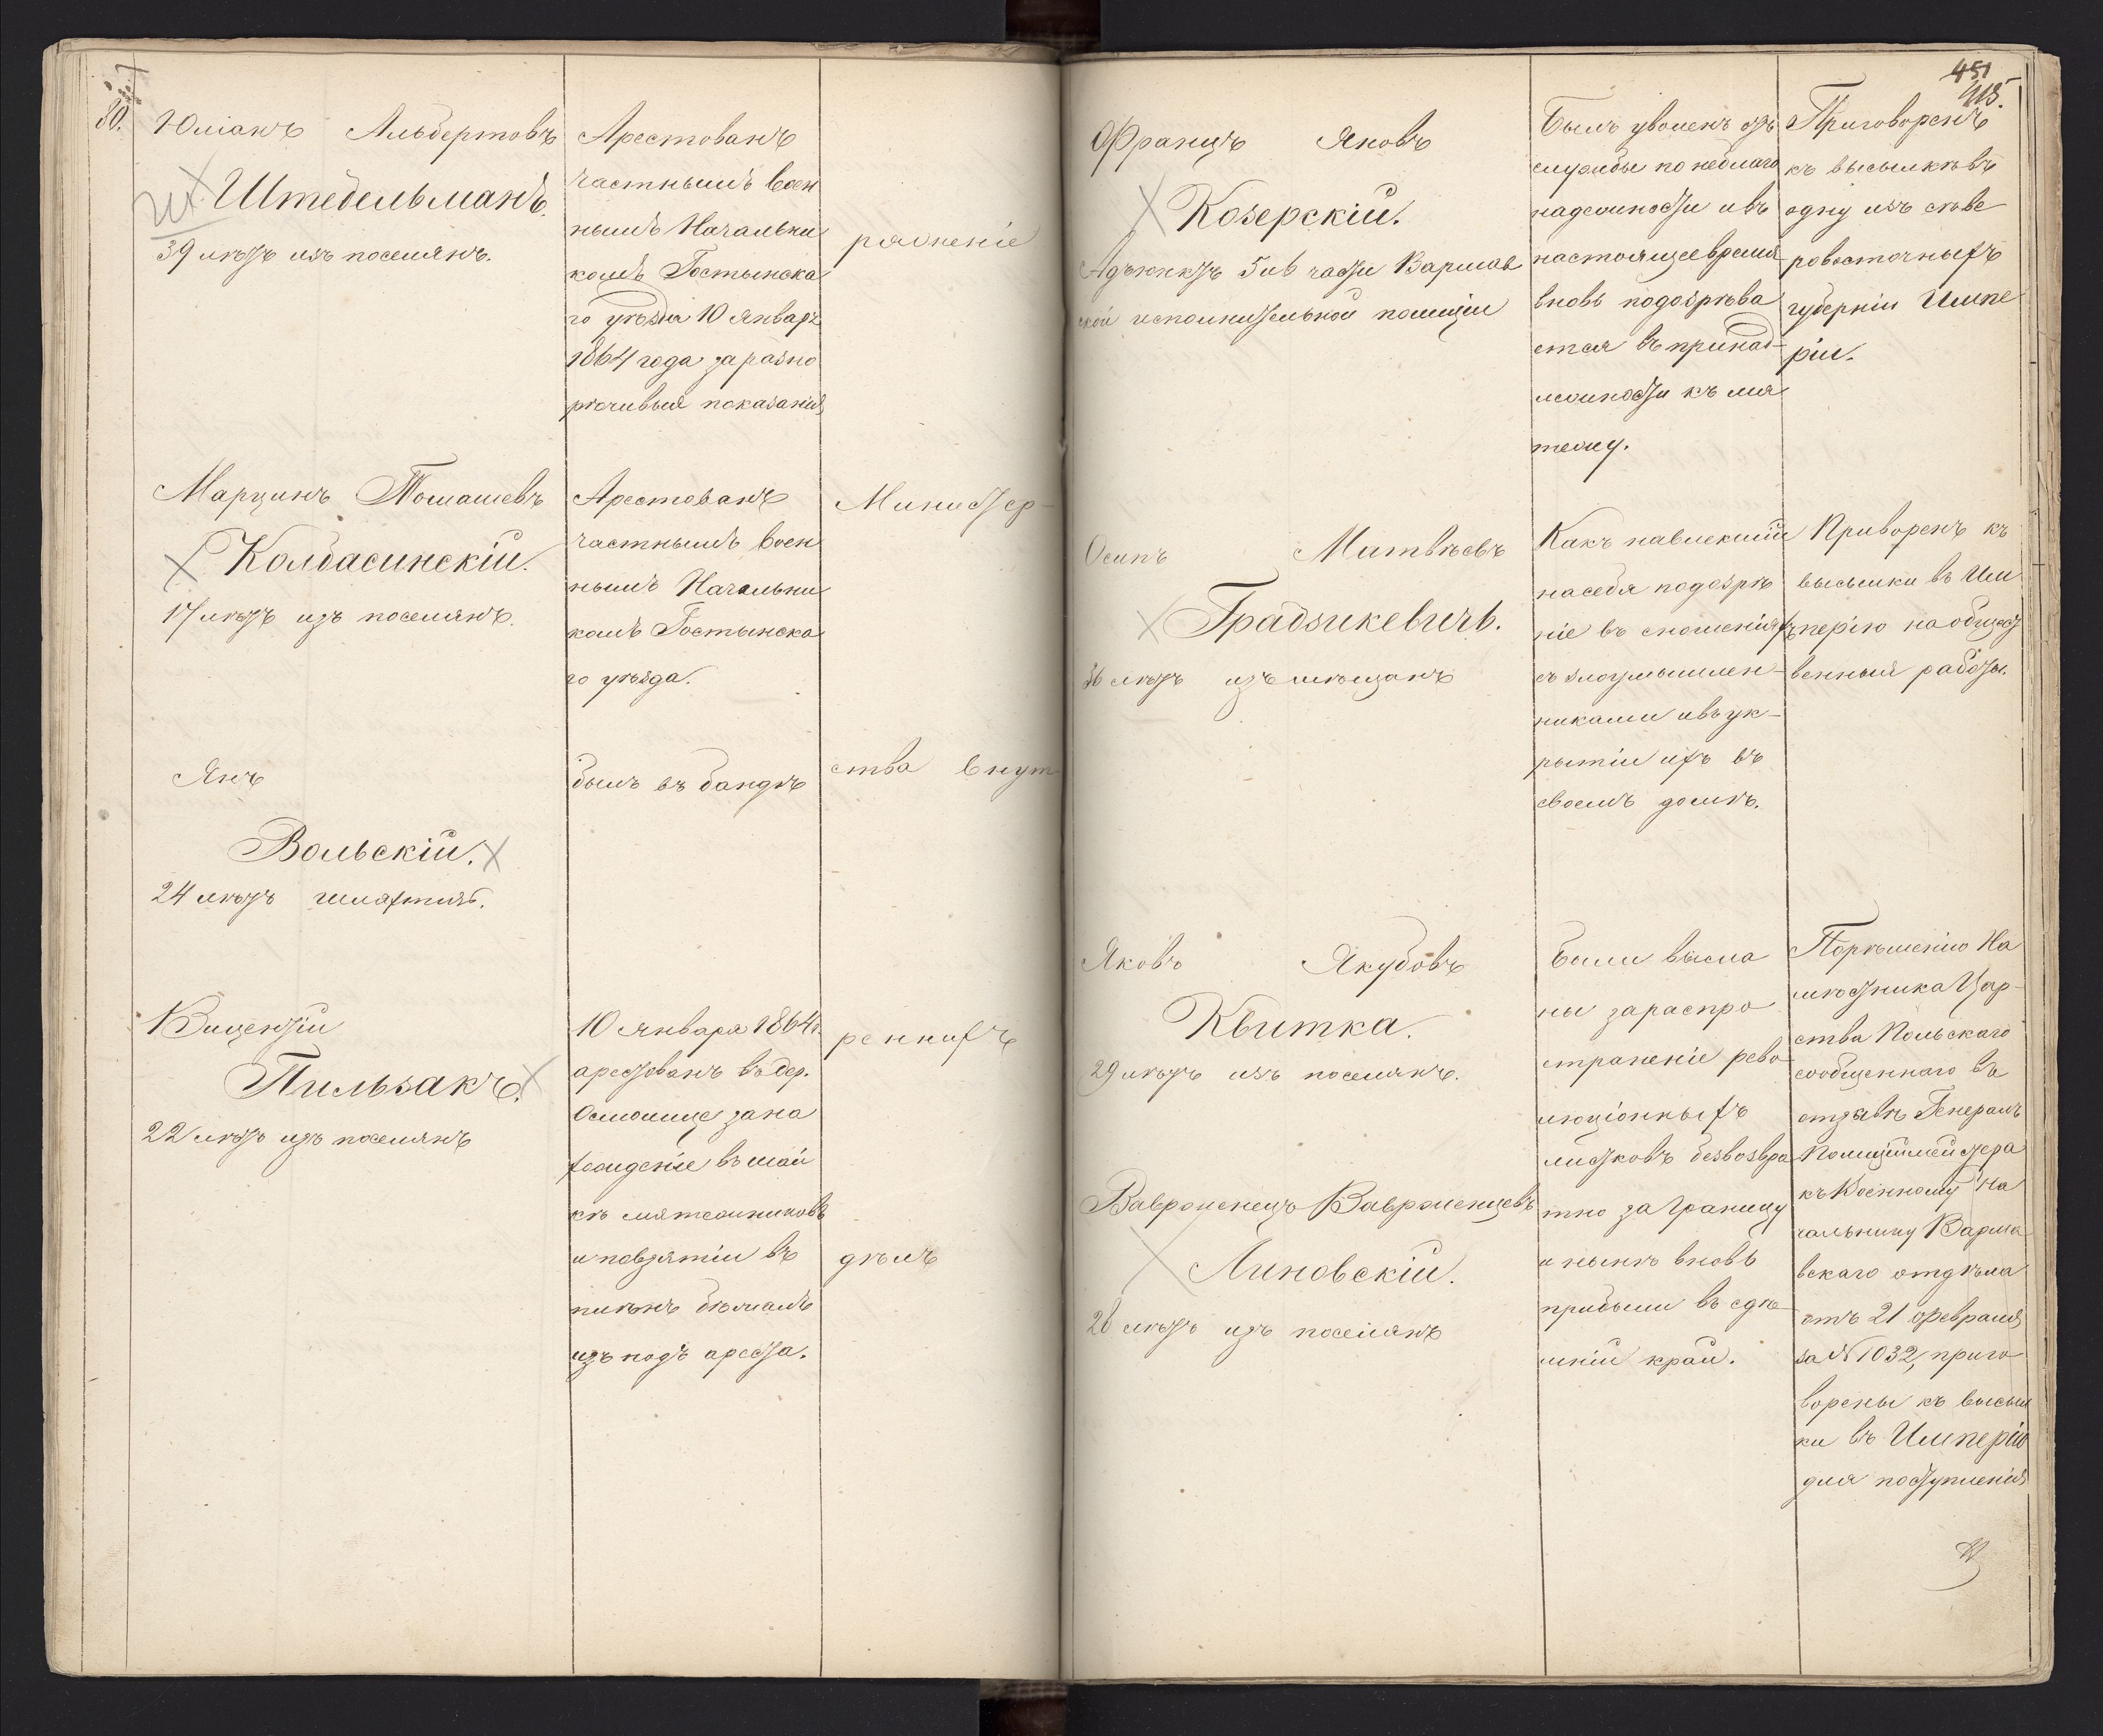 80.
Юліанъ Альбертовъ
Штебельманъ.
39 лѣтъ изъ поселянъ.
Арестованъ
частнымъ Воен
нымъ Начальни
комъ Гостынска
го уѣзда 10 Январѣ
1864 года за разно
рѣчивыя показанія
ряженіе
Марцинъ Томашевъ
Колбасинскій.
17 лѣтъ изъ поселянъ.
Арестованъ
частнымъ Воен
нымъ Начальни
комъ Гостынска
го уѣзда.
Министер-
Янъ
Вольскій.
24 лѣтъ шляхтичъ.
былъ въ бандѣ
ства внут
Виценты
Пильзакъ.
22 лѣтъ изъ поселянъ
10 Января 1864 г.
арестованъ въ дер.
за на
хожденіе въ шай
кѣ мятежниковъ
и по взятіи въ
плѣнъ бѣжалъ
изъ подъ ареста.
реннихъ
дѣлъ
451
415.
Францъ Яковъ
Козерскій.
Адъюнктъ 5 и 6 части Варшав
ской исполнительной полиціи
Былъ уволенъ отъ
службы по неблаго
надежности и въ
настоящее время
вновь подозрѣва
ется въ принад-
лежности къ мя
тежу.
Приговоренъ
къ высылкѣ въ
одну изъ сѣве
ровосточныхъ
губерніи Импе
ріи.
Осипъ Матвѣевъ
Градзикевичъ.
36 лѣтъ изъ мѣщанъ
Какъ навлекшій
на себя подозрѣ
ніе въ сношеніяхъ
съ злоумышлен-
никами и въ ук-
рытіи ихъ въ
своемъ домѣ.
Приворенъ къ
высылки въ Им
перію на общест
венныя работы.
Яковъ Якубовъ
Квитка.
29 лѣтъ изъ поселянъ.
Вавроненецъ Вавроненцевъ
Линовскій.
26 лѣтъ изъ поселянъ
Были высла
ны за распро
страненіе рево-
люціонныхъ
листковъ безвозвра
тно за границу
и нынѣ вновь
прибыли въ здѣ-
шній край.
По рѣшенію На
мѣстника Цар-
ства Польскаго
сообщеннаго въ
отзывѣ Генералъ
Полиціймейстера
къ Военному На
чальнику Варша
вскаго отдѣла
отъ 21 Февраля
за № 1032, приго
ворены къ высыл
ки въ Имперію
для поступленія